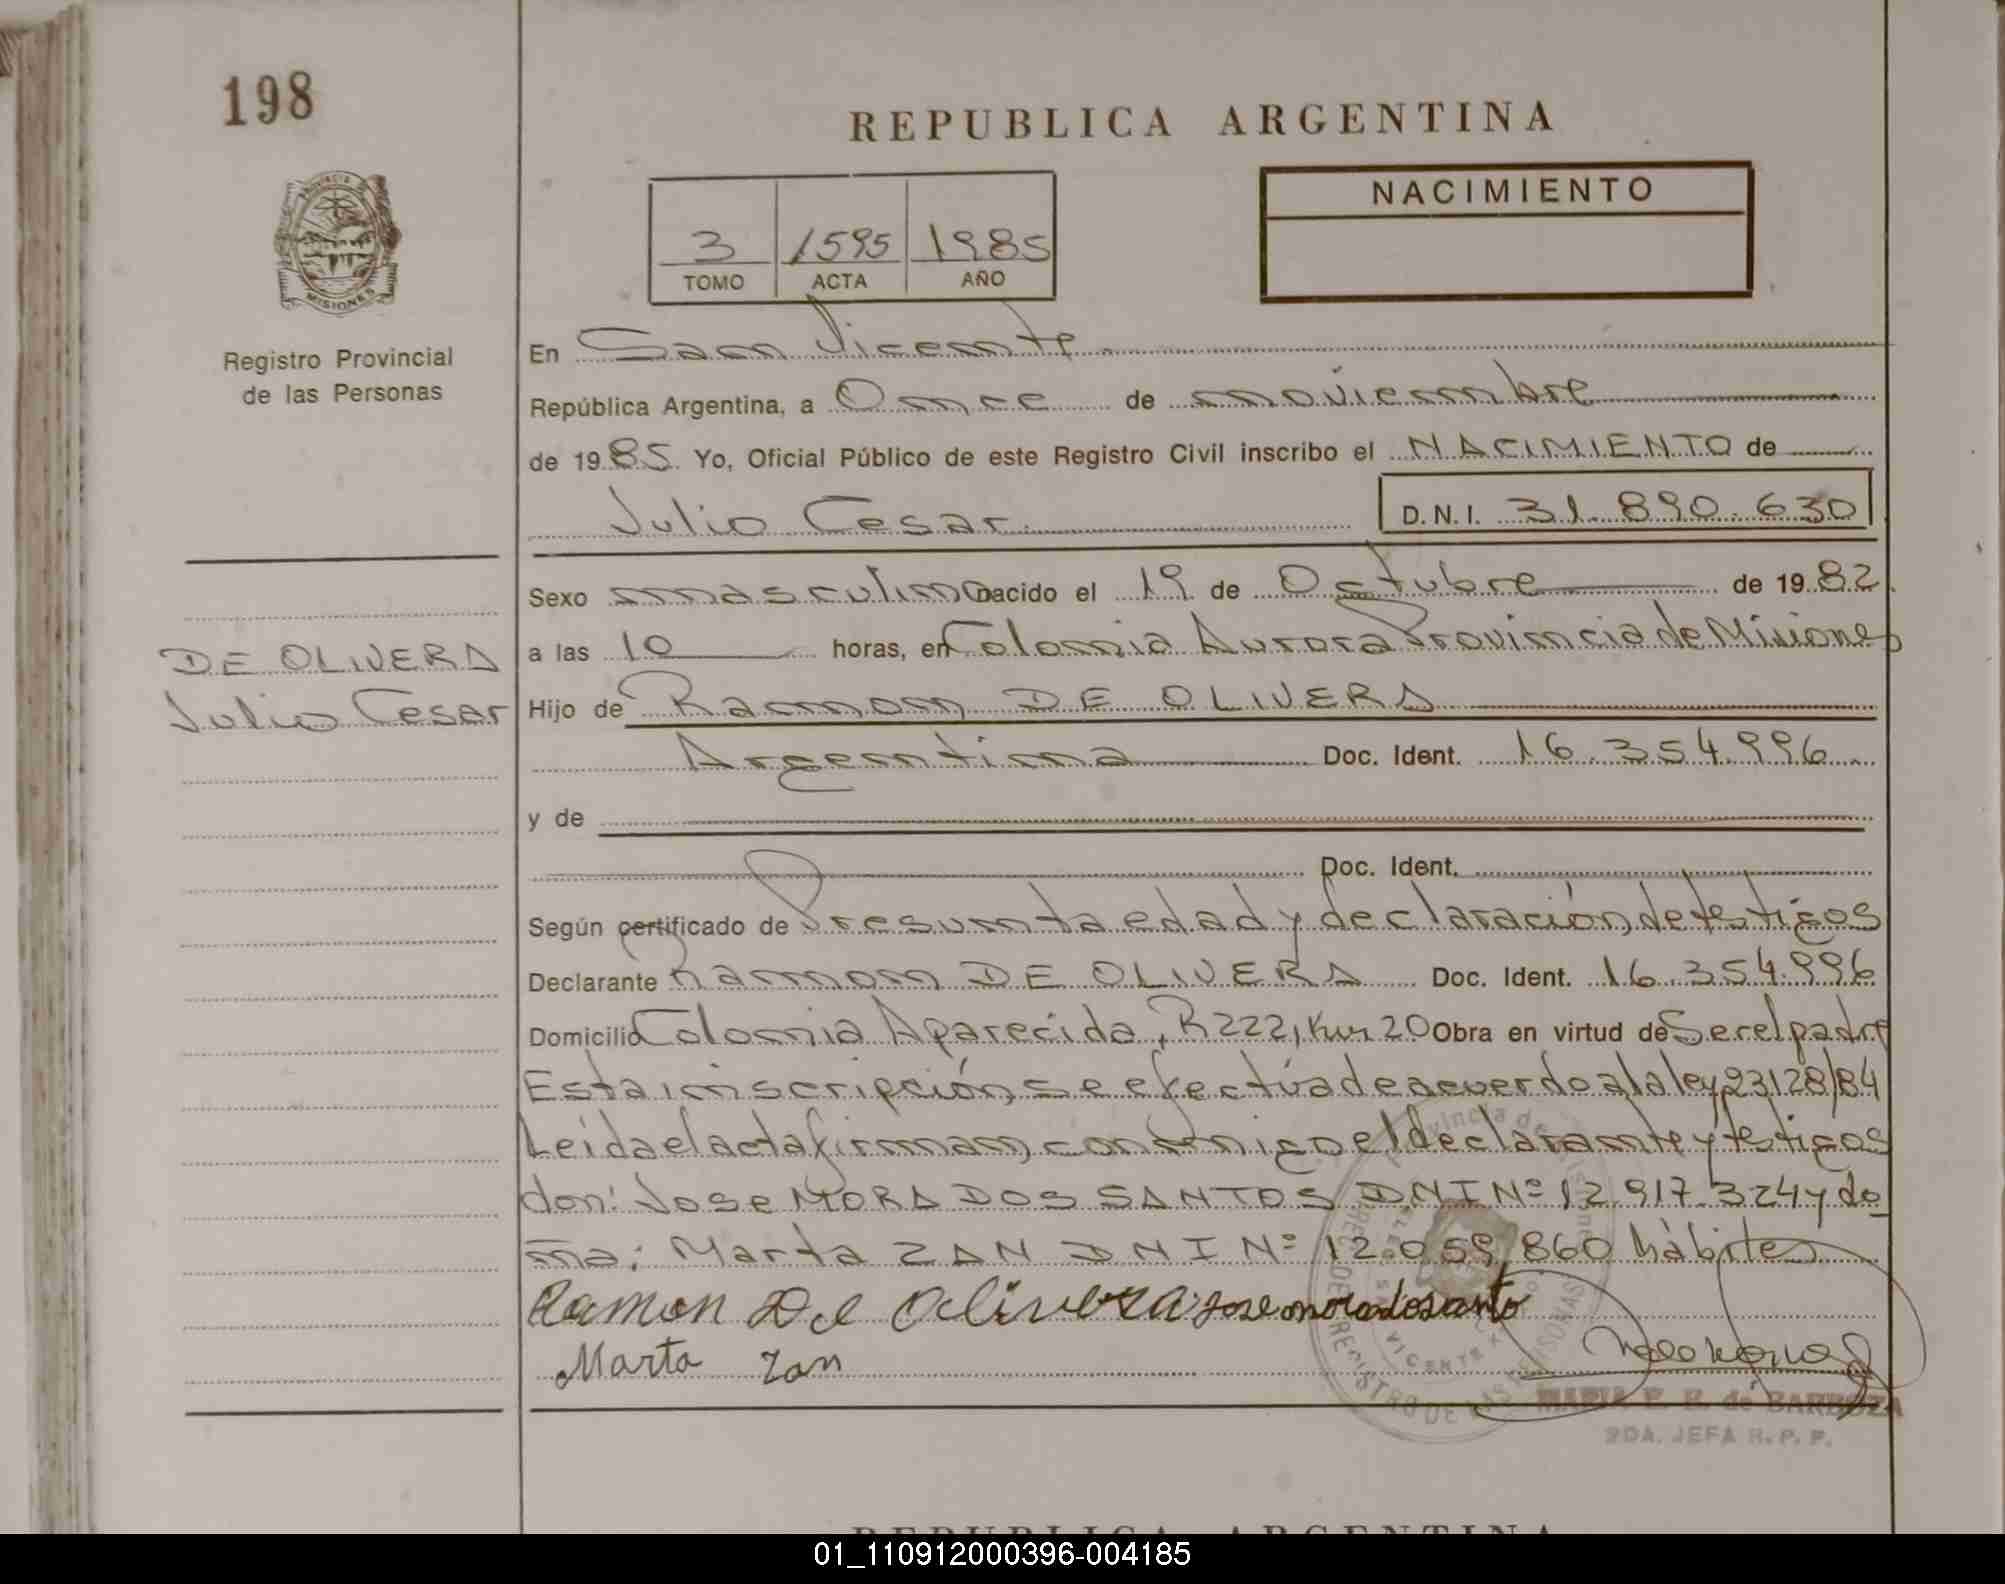 198
REPUBLICA ARGENTINA
NACIMIENTO
3 1595 1985
TOMO ACTA AÑO
PROVINCIA DE
MISIONES
Registro Provincial
de las Personas
En San Vicente
República Argentina, a Once de noviembre
de 1985. Yo, Oficial Público de este Registro Civil inscribo el NACIMIENTO de
Julio Cesar D.N.I. 31.890.630
Sexo masculino nacido el 19 de Octubre de 1982
DE OLIVERA
Julio Cesar
a las 10 horas, en Colonia Aurora Provincia de Misiones
Hijo de Ramon DE OLIVERA
Argentina Doc. Ident. 16.354.996
y de
Doc. Ident.
Según certificado de Presunta edad y declaración de testigos
Declarante Ramon DE OLIVERA Doc. Ident. 16.354.996
Domicilio Colonia Aparecida, R222, Km 20 Obra en virtud de Ser el padre
Esta inscripción se efectúa de acuerdo a la ley 23128/84
Leída el acta firman conmigo el declarante y testigos
don: Jose MORA DOS SANTOS DNI Nº 12.917.324 y do
ña: Marta ZAN DNI Nº 12.059.860 hábiles
Ramon De Olivera Jose mora dos santo
Marta Zan
MARIA E. R. de BARBOZA
2DA. JEFA R. P. P.
REPUBLICA ARGENTINA
01_110912000396-004185